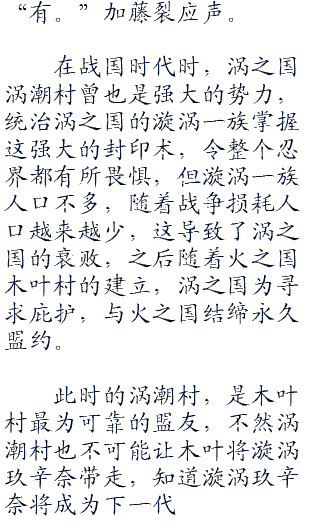 “有。”加藤裂应声。
在战国时代时，涡之国
涡潮村曾也是强大的势力，
统治涡之国的漩涡一族掌握
这强大的封印术，令整个忍
界都有所畏惧，但漩涡一族
人口不多，随着战争损耗人
口越来越少，这导致了涡之
国的衰败，之后随着火之国
木叶村的建立，涡之国为寻
求庇护，与火之国结缔永久
盟约。
此时的涡潮村，是木叶
村最为可靠的盟友，不然涡
潮村也不可能让木叶将漩涡
玖辛奈带走，知道漩涡玖辛
奈将成为下一代